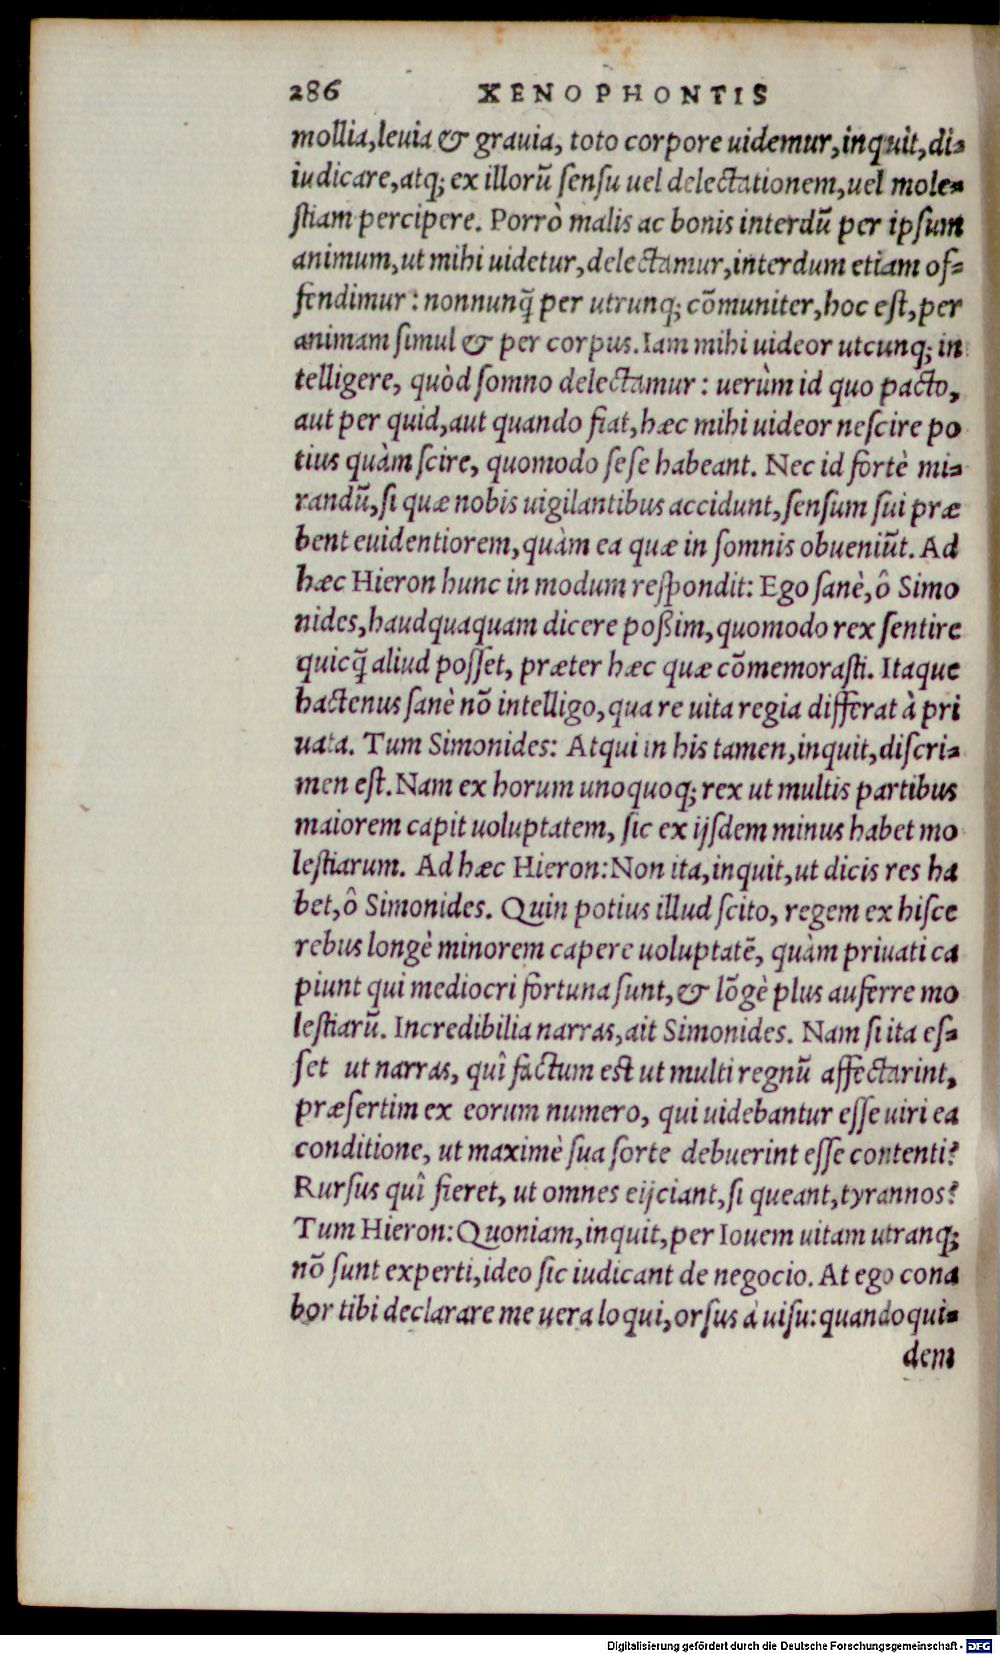 286 XENOPHONTIS
mollia, leuia & grauia, toto corpore uidemur, inquit, di-
iudicare, atq; ex illorũ ſenſu uel delectationem, uel mole-
ſtiam percipere. Porrò malis ac bonis interdũ per ipſum
animum, ut mihi uidetur, delectamur, interdum etiam of-
fendimur : nonnunq̃ per utrunq; cõmuniter, hoc eſt, per
animam ſimul & per corpus. Iam mihi uideor utcunq; in
telligere, quòd ſomno delectamur : uerùm id quo pacto,
aut per quid, aut quando fiat, hæc mihi uideor neſcire po
tius quàm ſcire, quomodo ſeſe habeant. Nec id fortè mi-
randũ, ſi quæ nobis uigilantibus accidunt, ſenſum ſui præ
bent euidentiorem, quàm ea quæ in ſomnis obueniũt. Ad
hæc Hieron hunc in modum reſpondit: Ego ſanè, ô Simo
nides, haudquaquam dicere poßim, quomodo rex ſentire
quicq̃ aliud poſſet, præter hæc quæ cõmemoraſti. Itaque
hactenus ſanè nõ intelligo, qua re uita regia differat à pri
uata. Tum Simonides: Atqui in his tamen, inquit, diſcri-
men eſt. Nam ex horum unoquoq; rex ut multis partibus
maiorem capit uoluptatem, ſic ex ijſdem minus habet mo
leſtiarum. Ad hæc Hieron: Non ita, inquit, ut dicis res ha
bet, ô Simonides. Quin potius illud ſcito, regem ex hiſce
rebus longè minorem capere uoluptatẽ, quàm priuati ca
piunt qui mediocri fortuna ſunt, & lõgè plus auferre mo
leſtiarũ. Incredibilia narras, ait Simonides. Nam ſi ita eſ-
ſet ut narras, quî factum est ut multi regnũ affectarint,
præſertim ex eorum numero, qui uidebantur eſſe uiri ea
conditione, ut maximè ſua ſorte debuerint eſſe contenti?
Rurſus quî fieret, ut omnes eijciant, ſi queant, tyrannos?
Tum Hieron: Quoniam, inquit, per Iouem uitam utranq;
nõ ſunt experti, ideo ſic iudicant de negocio. At ego cona
bor tibi declarare me uera loqui, orſus à uiſu: quandoqui-
dem
Digitalisierung gefördert durch die Deutsche Forschungsgemeinschaft - DFG